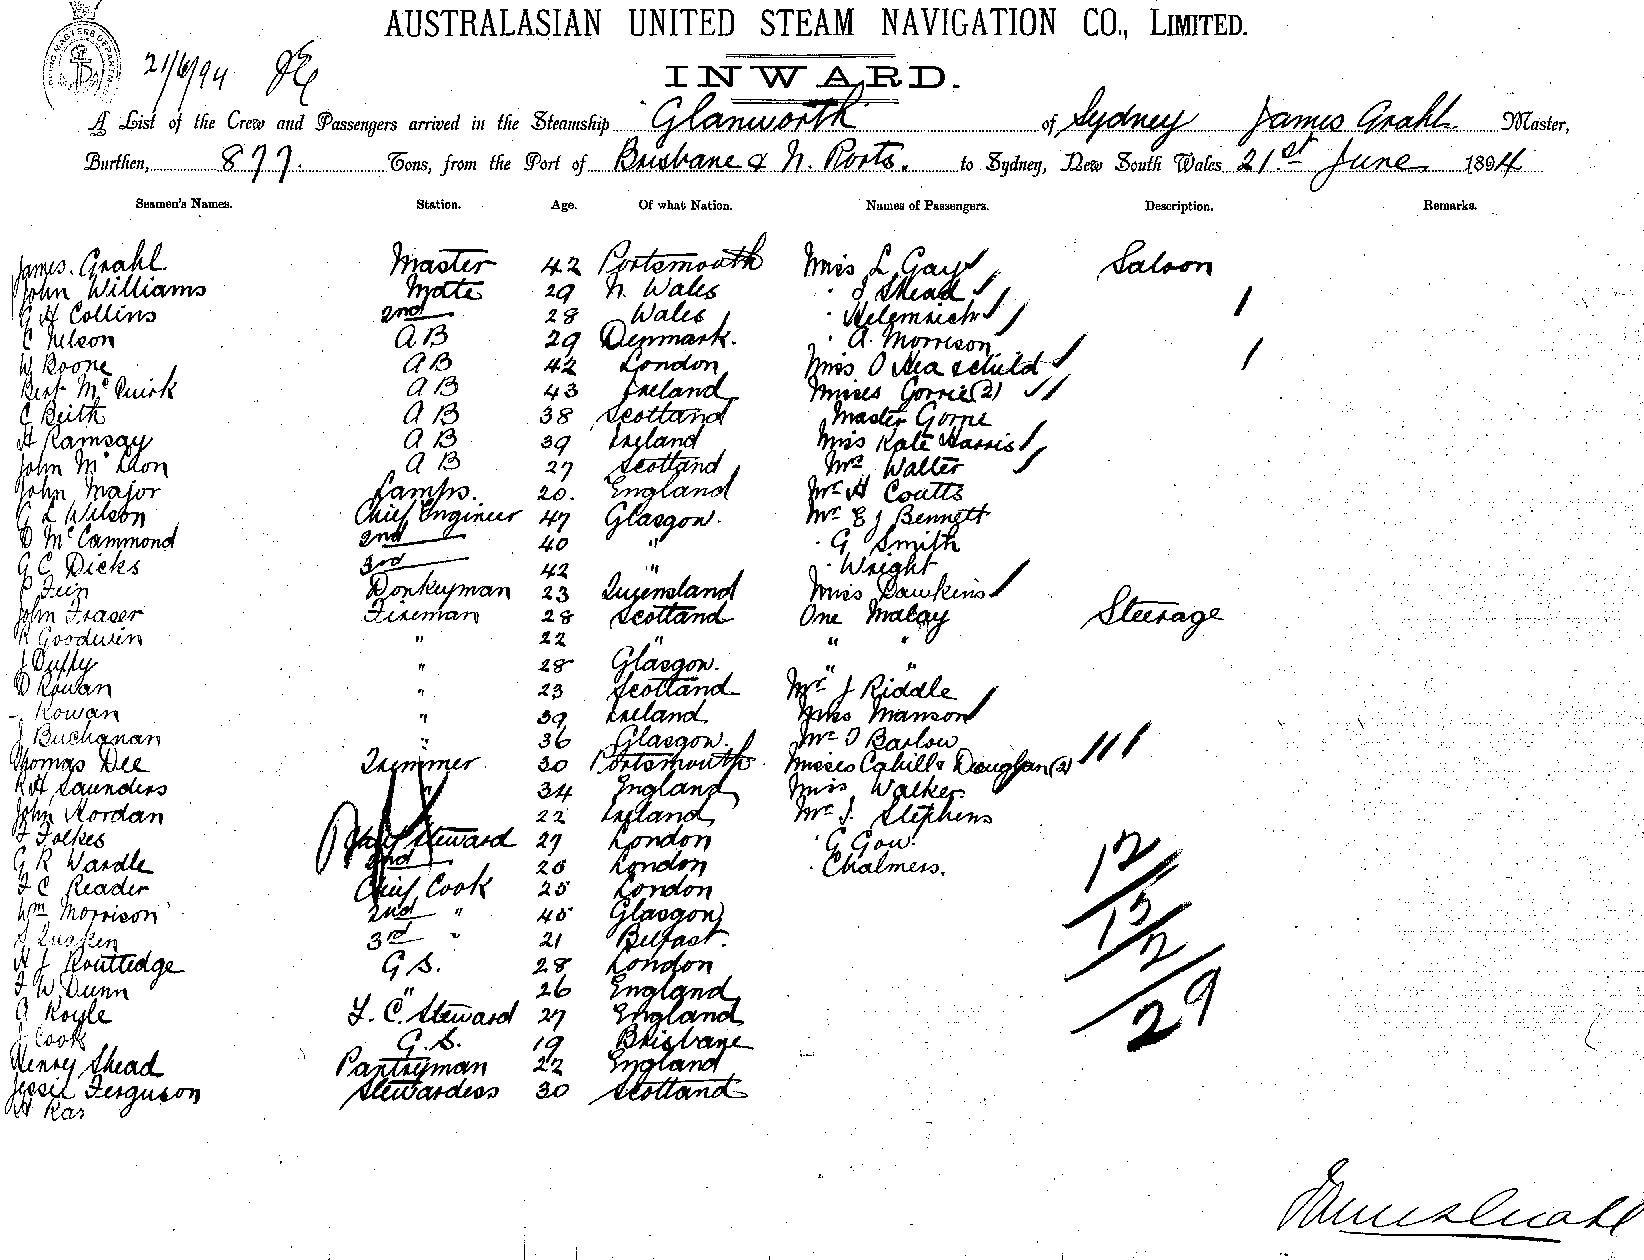 AUSTRALASIAN UNITED STEAM NAVIGATION CO., LIMITED.
21/6/94
INWARD.
A List of the Crew and Passengers arrived in the Steamship Glanworth of Sydney James Grahl Master,
Burthen, 877. Tons, from the Port of Brisbane & N. Ports. to Sydney, New South Wales 21st June 1894
Seamen's Names. Station. Age. Of what Nation. Names of Passengers. Description. Remarks.
James Grahl Master 42 Portsmouth Miss L Gay Saloon
John Williams Mate 29 N. Wales " J Shead
G H Collins 2nd 28 Wales "
C Nelson A B 29 Denmark. " A. Morrison
W Boone A B 42 London Miss O Hea & child
Bert McQuirk A B 43 Ireland Misses Gorrie (2)
C Beith A B 38 Scotland Master Gorrie
H Ramsay A B 39 Ireland Miss Kate Harris
John McLeon A B 27 Scotland Mrs Walter
John Major Lamps. 20. England Mr H Coutts
G L Wilson Chief Engineer 47 Glasgow. Mr E J Bennett
D McCammond 2nd 40 " " G Smith
G C Dicks 3rd 42 " " Wright
Donkeyman 23 Queensland Miss Dawkins
John Fraser Fireman 28 Scotland One Malay Steerage
R Goodwin " 22 " " "
J Duffy " 28 Glasgow. " "
D Rowan " 23 Scotland Mr J Riddle
- Rowan " 39 Ireland Miss Manson
J Buchanan " 36 Glasgow. Mr D Barlow
Thomas Dee Trimmer 30 Portsmouth Misses Cahill & Douglan (2)
R H Saunders " 34 England Miss Walker
John Hordan 22 Ireland Mr J. Stephens
F Folkes Steward 27 London " G Gow.
G R Wardle 2nd 20 London " Chalmers.
F C Reader Chief Cook 25 London
Wm Morrison 2nd " 45 Glasgow
3rd " 21 Belfast.
H J Routledge G S. 28 London
F W Dunn " 26 England
A Royle F. C. Steward 27 England
J Cook G. S. 19 Brisbane
Henry Shead Pantryman 22 England
Jessie Ferguson Stewardess 30 Scotland
12
15
2
29
James Grahl